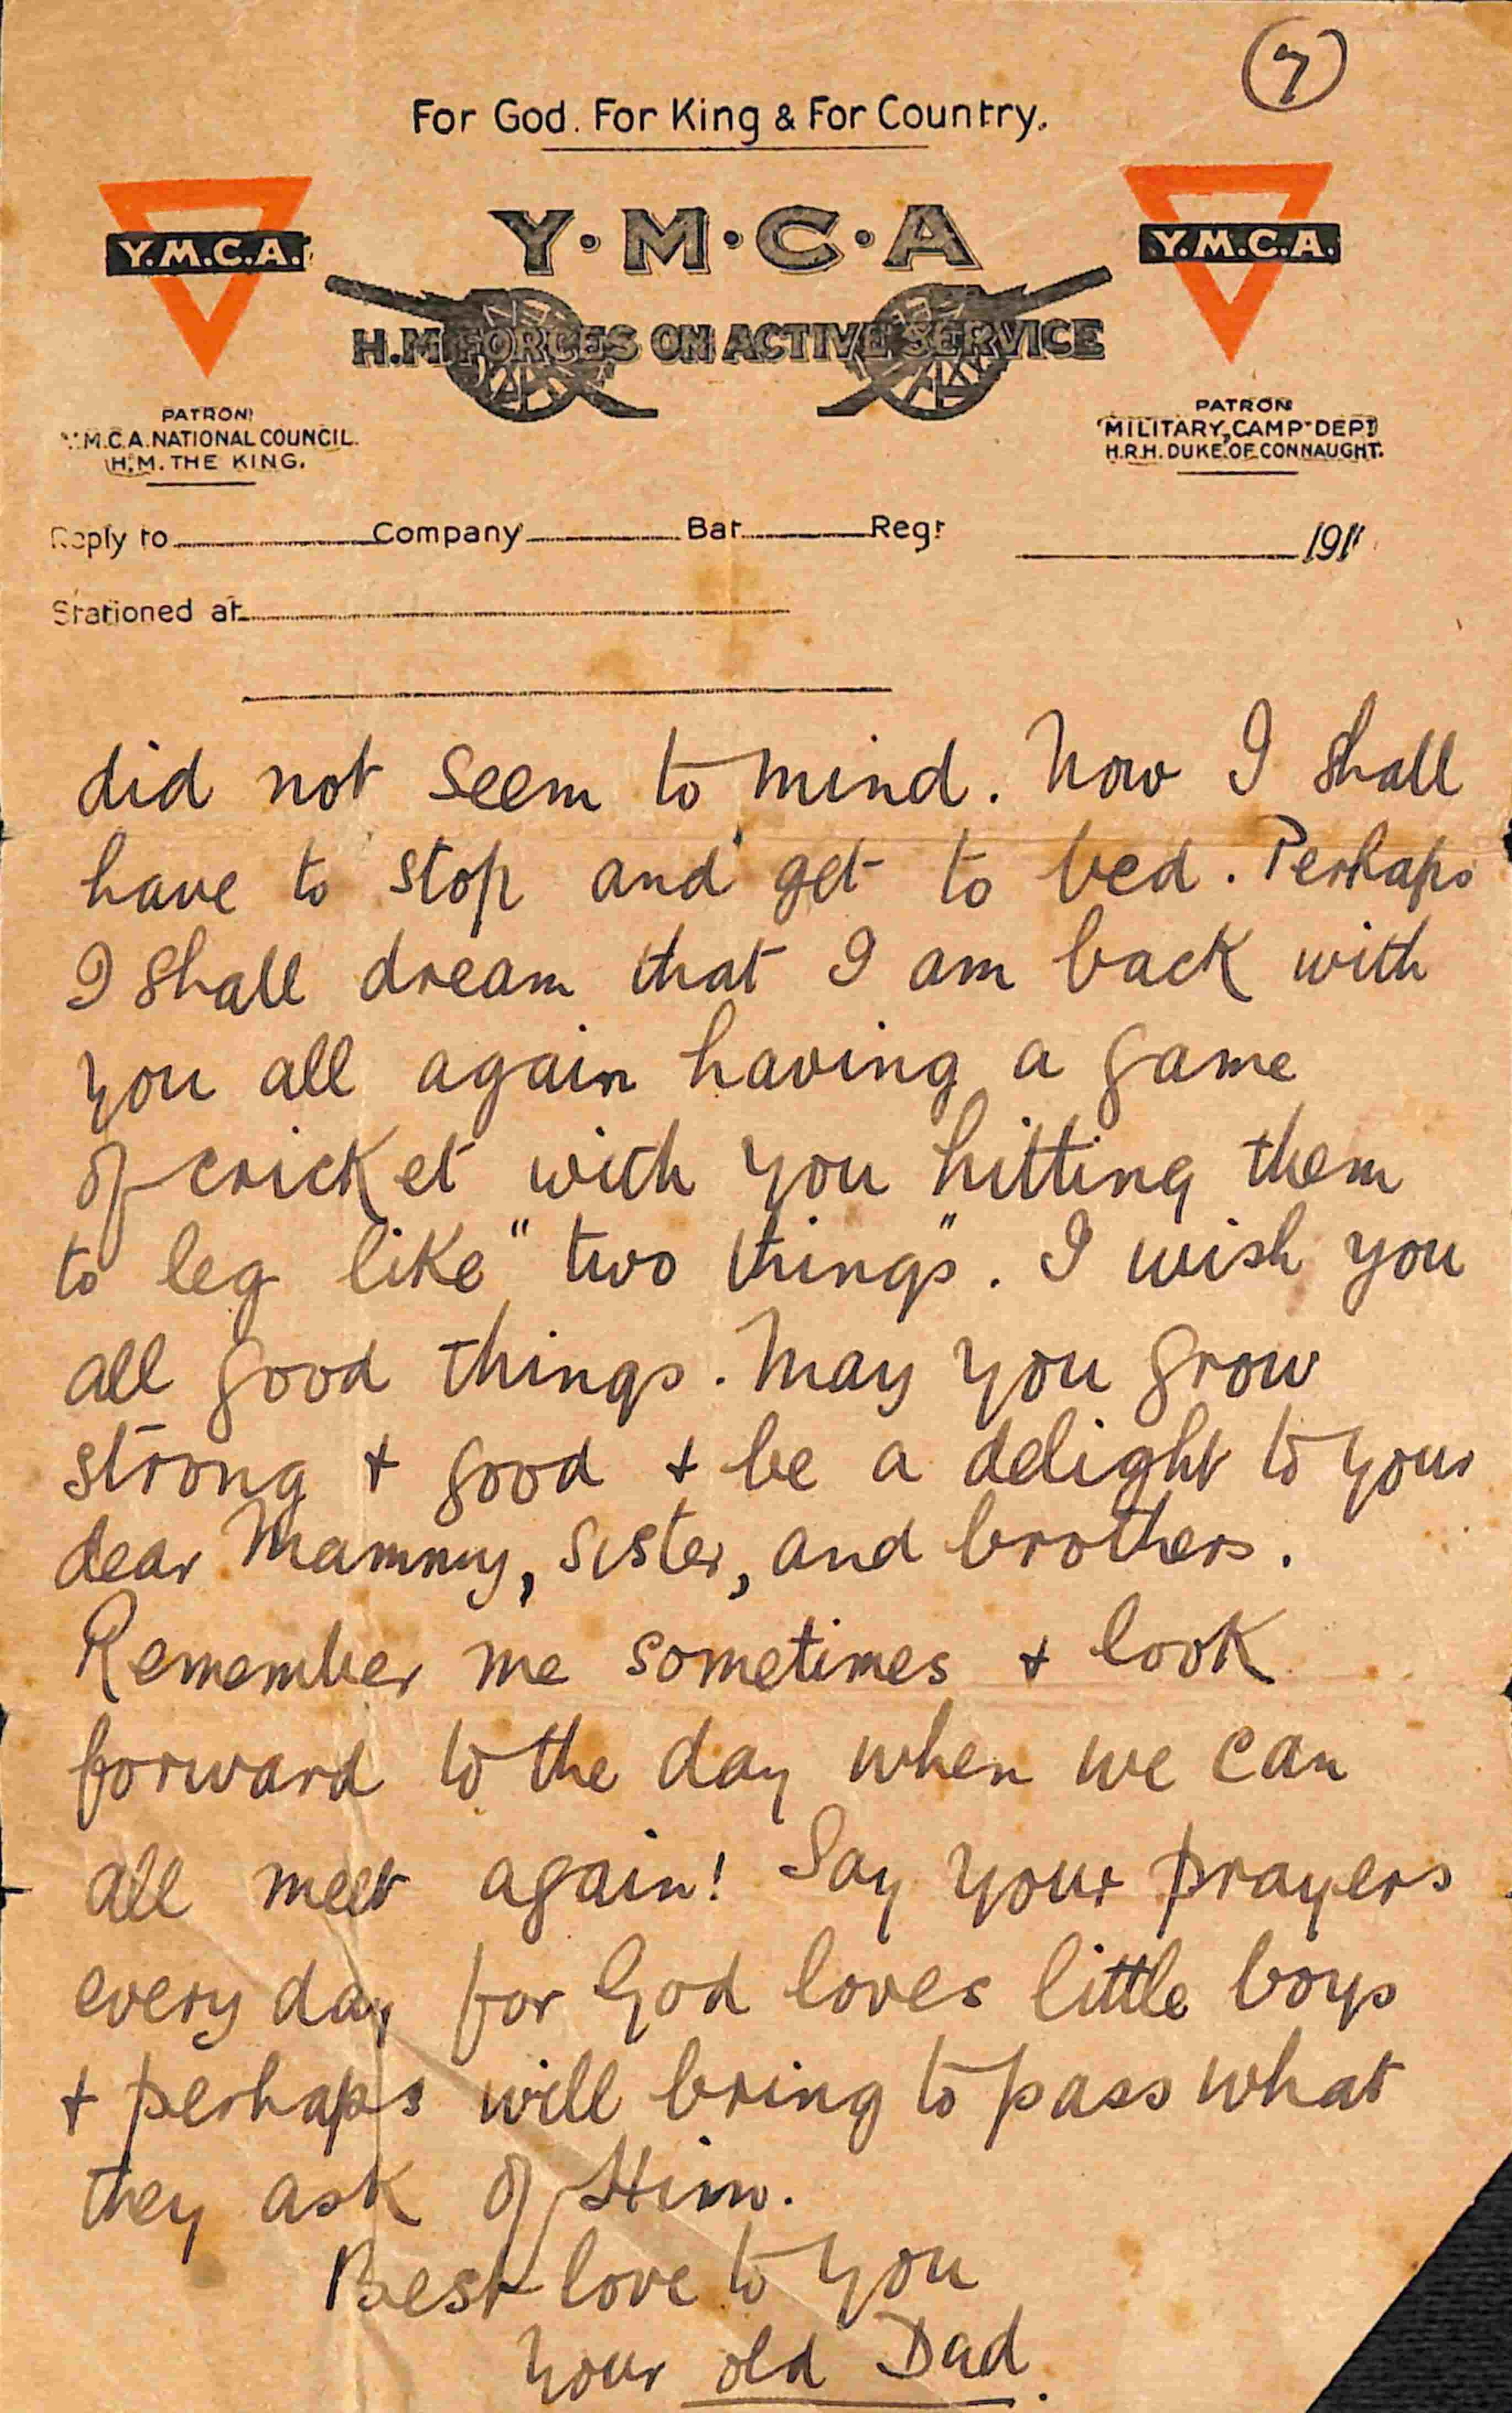 7
For God. For King & For Country.
Y.M.C.A.
Y·M·C·A
Y.M.C.A.
H.M. FORCES ON ACTIVE SERVICE
PATRON
Y.M.C.A. NATIONAL COUNCIL.
H.M. THE KING.
PATRON
MILITARY CAMP DEPT
H.R.H. DUKE OF CONNAUGHT.
Reply to Company Bat Regt 191
Stationed at
did not seem to mind. Now I shall
have to stop and get to bed. Perhaps
I shall dream that I am back with
you all again having a game
of cricket with you hitting them
to leg like "two things". I wish you
all good things. May you grow
strong + good + be a delight to your
dear Mammy, sister, and brothers.
Remember me sometimes + look
forward to the day when we can
all meet again! Say your prayers
every day for God loves little boys
+ perhaps will bring to pass what
they ask of Him.
Best love to you
Your old Dad.